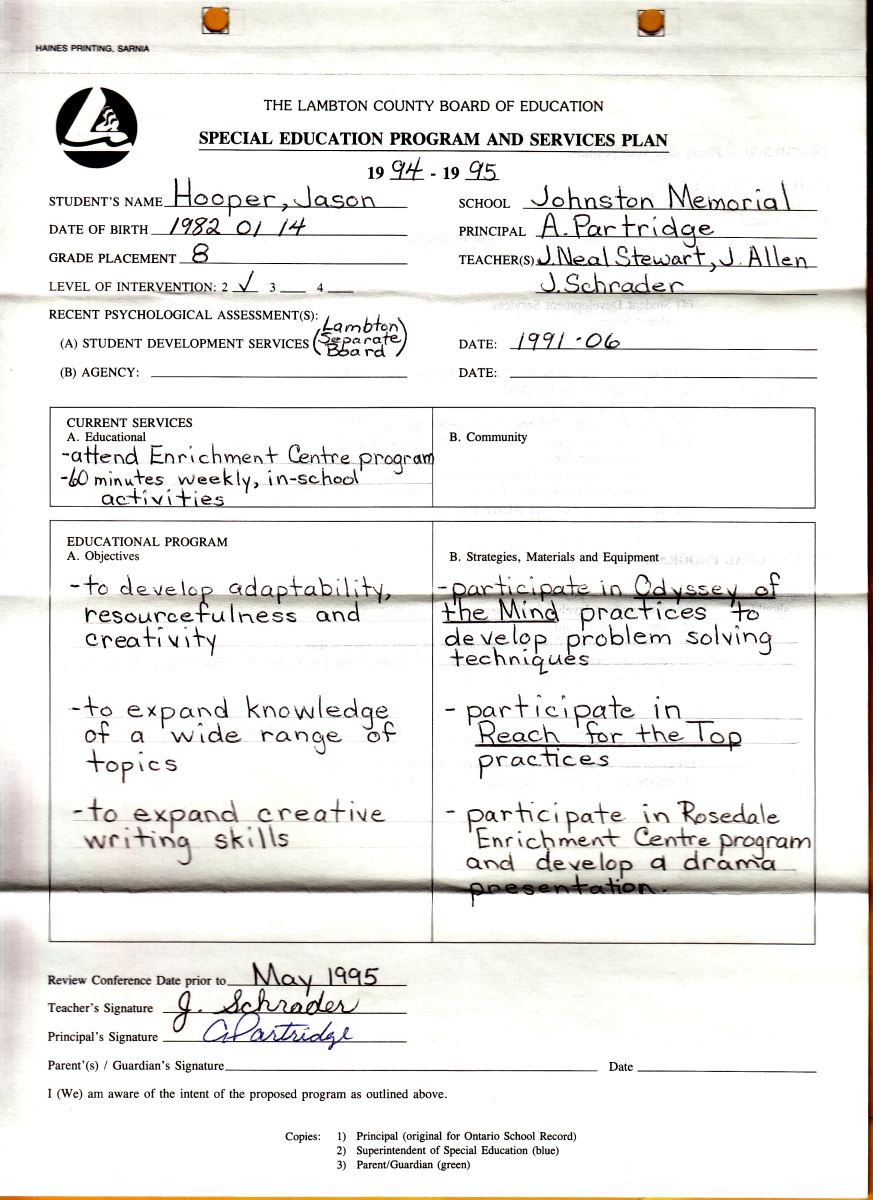 HAINES PRINTING, SARNIA
THE LAMBTON COUNTY BOARD OF EDUCATION
SPECIAL EDUCATION PROGRAM AND SERVICES PLAN
19 94 - 19 95
STUDENT'S NAME Hooper, Jason
DATE OF BIRTH 1982 01 14
GRADE PLACEMENT 8
LEVEL OF INTERVENTION: 2 ✓ 3 ___ 4 ___
SCHOOL Johnston Memorial
PRINCIPAL A. Partridge
TEACHER(S) J. Neal Stewart, J. Allen
J. Schrader
RECENT PSYCHOLOGICAL ASSESSMENT(S):
(A) STUDENT DEVELOPMENT SERVICES (Lambton
Separate
Board)
DATE: 1991-06
(B) AGENCY:
DATE:
CURRENT SERVICES
A. Educational
-attend Enrichment Centre program
-60 minutes weekly, in-school
activities
B. Community
EDUCATIONAL PROGRAM
A. Objectives
-to develop adaptability,
resourcefulness and
creativity
-to expand knowledge
of a wide range of
topics
-to expand creative
writing skills
B. Strategies, Materials and Equipment
-participate in Odyssey of
the Mind practices to
develop problem solving
techniques
- participate in
Reach for the Top
practices
- participate in Rosedale
Enrichment Centre program
and develop a drama
presentation.
Review Conference Date prior to May 1995
Teacher's Signature J. Schrader
Principal's Signature A Partridge
Parent'(s) / Guardian's Signature
Date
I (We) am aware of the intent of the proposed program as outlined above.
Copies: 1) Principal (original for Ontario School Record)
2) Superintendent of Special Education (blue)
3) Parent/Guardian (green)